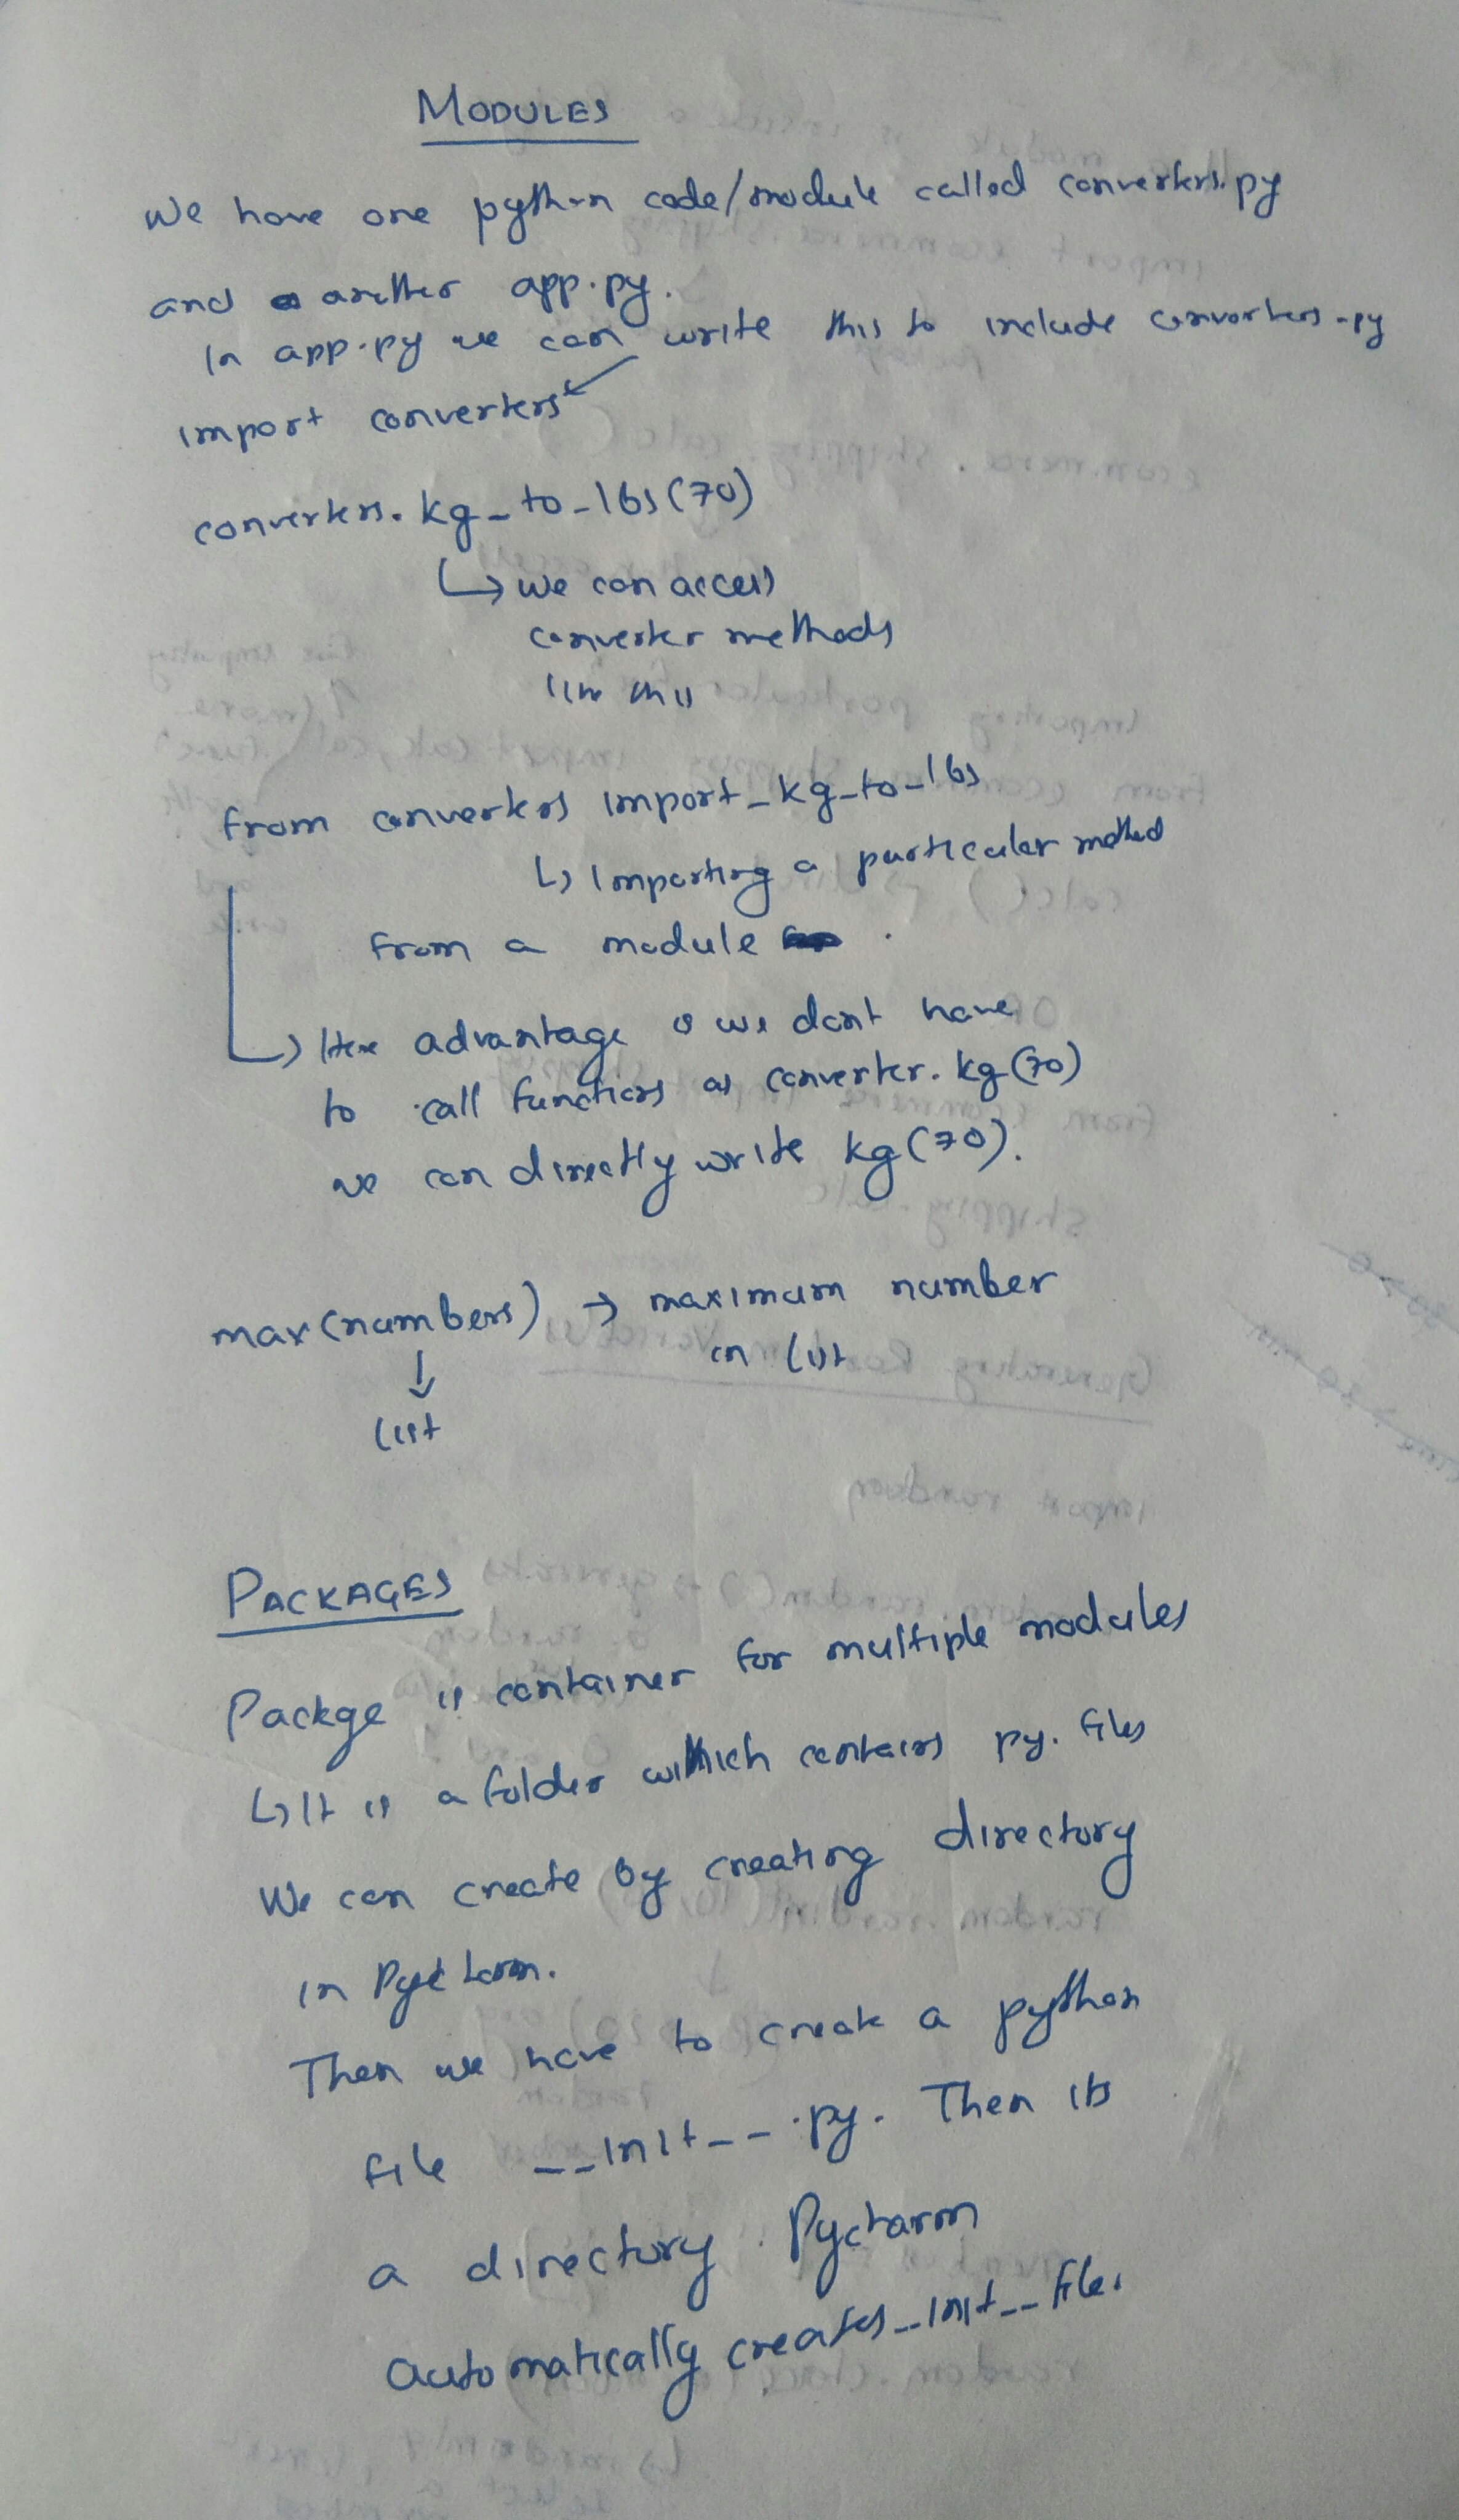 MODULES
We have one python code/module called converters.py
and another app.py.
In app.py we can write this to include converters.py
import converters
converters.kg_to_lbs(70)
↳ we can access
converter methods
like this
from converters import_kg_to_lbs
↳ Importing a particular method
from a module .
↳ Here advantage is we dont have
to call functions as converter.kg(70)
we can directly write kg(70).
max(numbers) → maximum number
in list
↓
list
PACKAGES
Packge is container for multiple modules
↳ It is a folder which contains py. files
We can create by creating directory
in Pycharm.
Then we have to create a python
file __init__.py. Then its
a directory. Pycharm
automatically creates __init__ file.